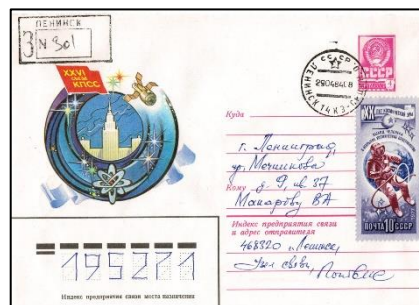 ЛЕНИНСК
З N 301
XXVI
съезд
КПСС
СССР
ЛЕНИНСК 14 КЗ-
290484
СССР
Куда
г. Ленинград,
ул. Мечникова
Кому д. 9, кв 37
Макарову ВА
Индекс предприятия связи
и адрес отправителя
468320 г. Ленинск,
Узел связи,
ПОЧТА 10к СССР
195271
Индекс предприятия связи места назначения